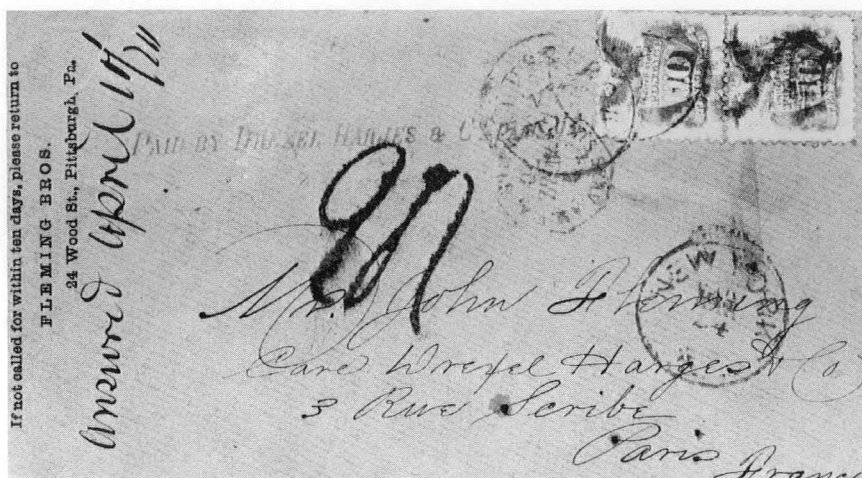 If not called for within ten days, please return to
FLEMING BROS.
24 Wood St., Pittsburgh, Pa.
Answered April 14/71
PAID BY DREXEL HARJES & C
10
10
NEW YORK
Mr. John Fleming
Care Drexel Harges & Co
3 Rue Scribe
Paris
France